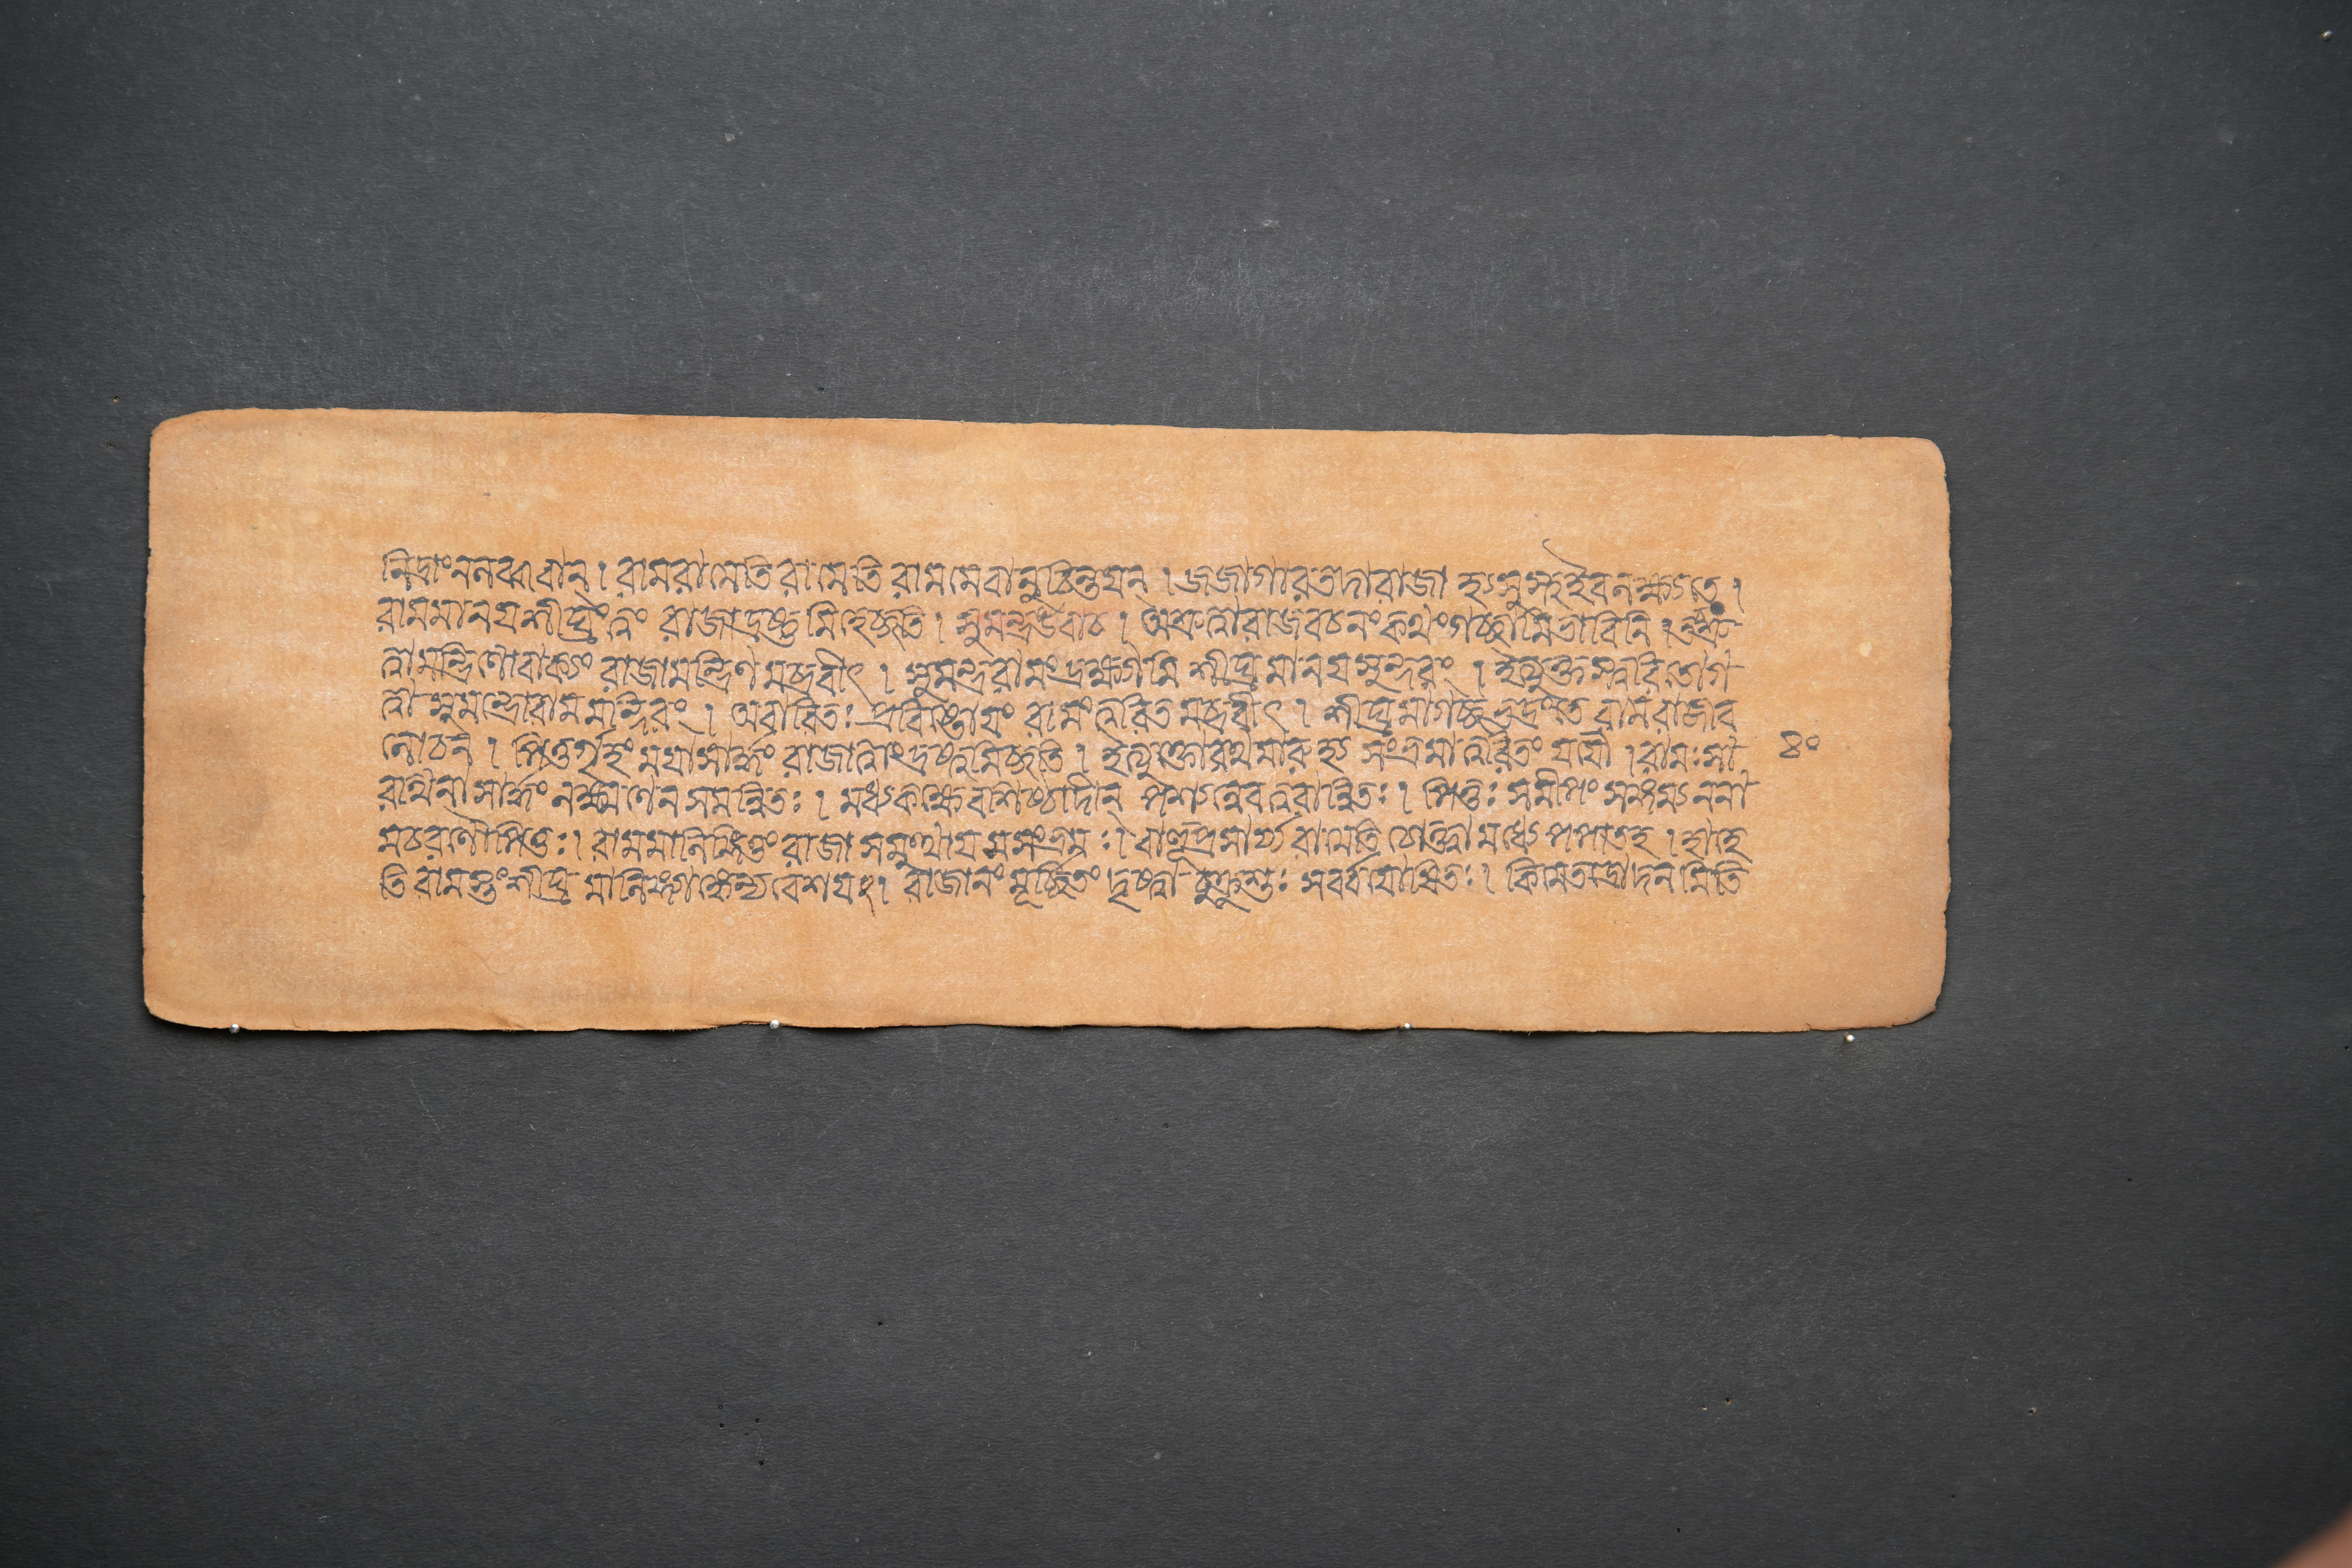 নিদ্রাংনলব্ধবান্। রামরামেতিরামেতিরামমেবানুচিন্তয়ন্। জজাগারতদারাজা হৃসুস্থইবলক্ষ্যতে।
রামমানয়শীঘ্রংত্বং রাজাদ্রষ্টুমিহেচ্ছতি। সুমন্ত্রউবাচ। অশ্রুত্বারাজবচনংকথংগচ্ছামিভাবিনি। তচ্ছ্রু
ত্বামন্ত্রিণোবাক্যং রাজামন্ত্রিণমব্রবীৎ। সুমন্ত্ররামংদ্রক্ষ্যামি শীঘ্রমানয়সুন্দরং। ইত্যুক্তস্ত্বরিতোগ
ত্বা সুমন্ত্রোরামমন্দিরং। অবারিতঃ প্রবিষ্টোয়ং রামংত্বরিতমব্রবীৎ। শীঘ্রমাগচ্ছভদ্রংতে রামরাজীব
লোচন। পিতুর্গৃহংময়াসার্দ্ধং রাজাত্বাংদ্রষ্টুমিচ্ছতি। ইত্যুক্তোরথমারুহ্য সংভ্রমাত্ত্বরিতং যযৌ। রামঃসা ৪০
রথিনাসার্দ্ধং লক্ষ্মণেন সমন্বিতঃ। মধ্যকক্ষেবশিষ্ঠাদীন্ পশ্যন্নেবত্বরান্বিতঃ। পিতুঃ সমীপং সঙ্গম্যননা
মচরণৌপিতুঃ। রামমালিঙ্গিতুংরাজা সমুত্থায়সসংভ্রমঃ। বাহূপ্রসার্য্যরামেতি শোকান্মধ্যেপপাতহ। হাহে
তি রামস্তংশীঘ্রমালিঙ্গ্যাঙ্কেন্যবেশয়ৎ। রাজানংমূর্চ্ছিতং দৃষ্ট্বা চুক্রুশুঃ সর্ব্বযোষিতঃ। কিমত্ররোদনমিতি